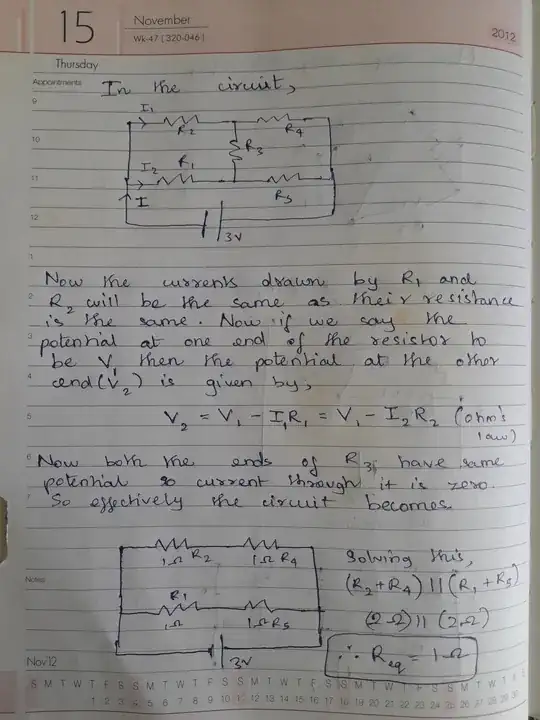 15
November
Wk-47 (320-046)
2012
Thursday
Appointments
In the circuit,
9
I1
R2
R4
10
R3
I2
R1
11
I
R5
12
3V
1
Now the currents drawn by R1 and
2
R2 will be the same as their resistance
is the same. Now if we say the
3
potential at one end of the resistor to
be V1 then the potential at the other
4
end (V2) is given by,
5
V2 = V1 - I1R1 = V1 - I2R2 (ohm's
law)
6
Now both the ends of R3, have same
potential so current through it is zero.
7
So effectively the circuit becomes
Solving this,
1Ω R2
1Ω R4
(R2+R4) || (R1 + R5)
Notes
R1
1Ω
1Ω R5
(2Ω) || (2Ω)
∴ Req = 1Ω
3V
Nov12
S M T W T F S S M T W T F S S M T W T F S S M T W T F S S M T W T F S
1 2 3 4 5 6 7 8 9 10 11 12 13 14 15 16 17 18 19 20 21 22 23 24 25 26 27 28 29 30